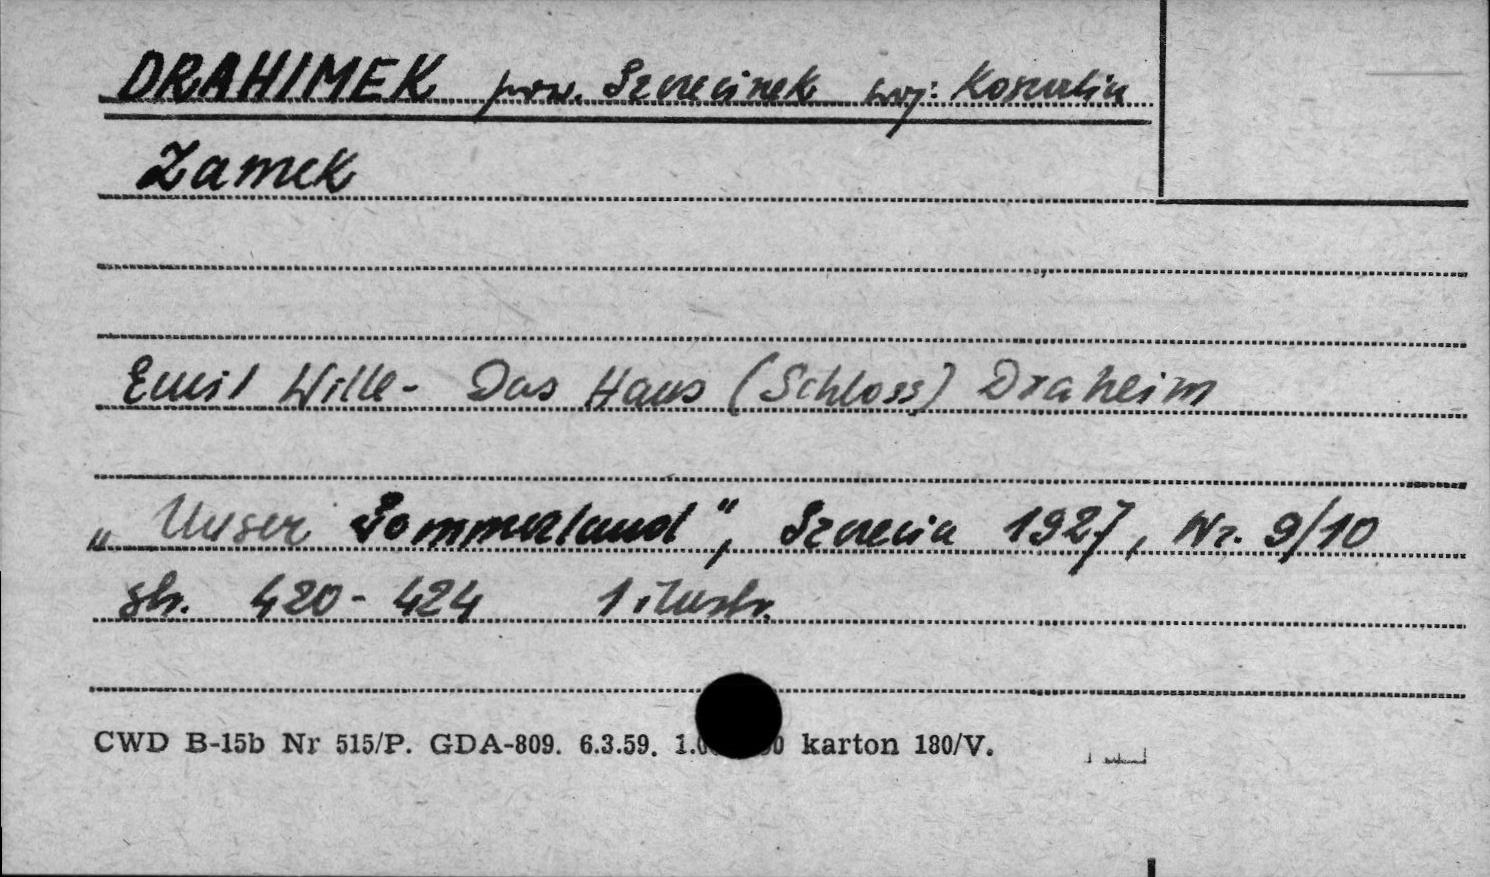 DRAHIMEK pow. Szczecinek woj: Koszalin
Zamek
Emil Wille - Das Haus (Schloss) Draheim
„Unser Pommerland", Szczecin 1927, Nr. 9/10
str. 420-424 1 ilustr.
CWD B-15b Nr 515/P. GDA-809. 6.3.59. karton 180/V.